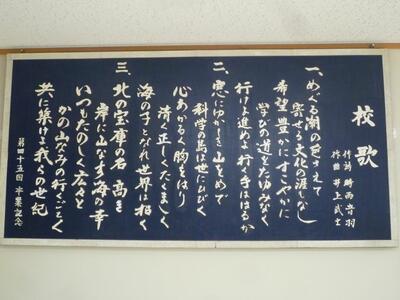 校歌
作詞 時雨音羽
作曲 井上武士
一、めぐる潮の色さえて
寄せくる文化の涯もなし
希望豊かにすこやかに
学びの道をたゆみなく
行けよ進めよ行く手ははるか
二、窓にゆかしき山をめで
科学の島は世にひびく
心あかるく胸をはり
清く正しくたくましく
海の子となれ世界は招く
三、北の宝庫の名も高き
岸に山なす海の幸
いつもたのしく広々と
かの山なみの行くごとく
共に築けよ我らの世紀
第四十五回 卒業記念